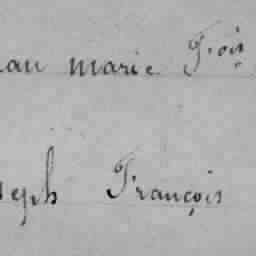 ean marie Fois
seph François